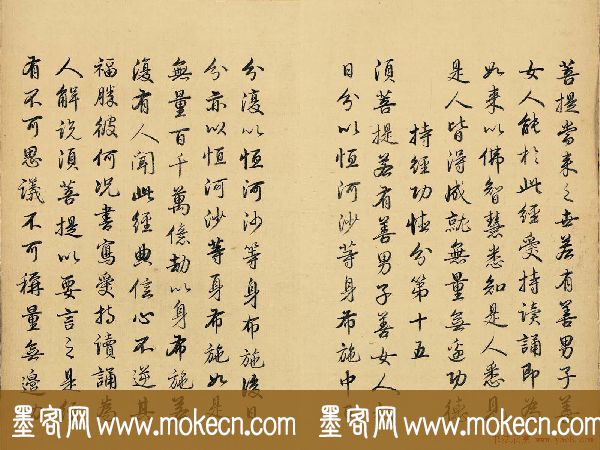 菩提當来之世若有善男子善
女人能於此經受持读誦即為
如来以佛智慧悉知是人悉見
是人皆得成就無量無邊功德
持經功德分第十五
須菩提若有善男子善女人
日分以恒河沙等身布施中
分復以恒河沙等身布施後日
分亦以恒河沙等身布施如是
無量百千萬億劫以身布施若
復有人聞此經典信心不逆其
福勝彼何况書寫受持讀誦為
人解说須菩提以要言之是經
有不可思議不可稱量無邊
墨客网 www.mokecn.com 墨客网 www.mokecn.com